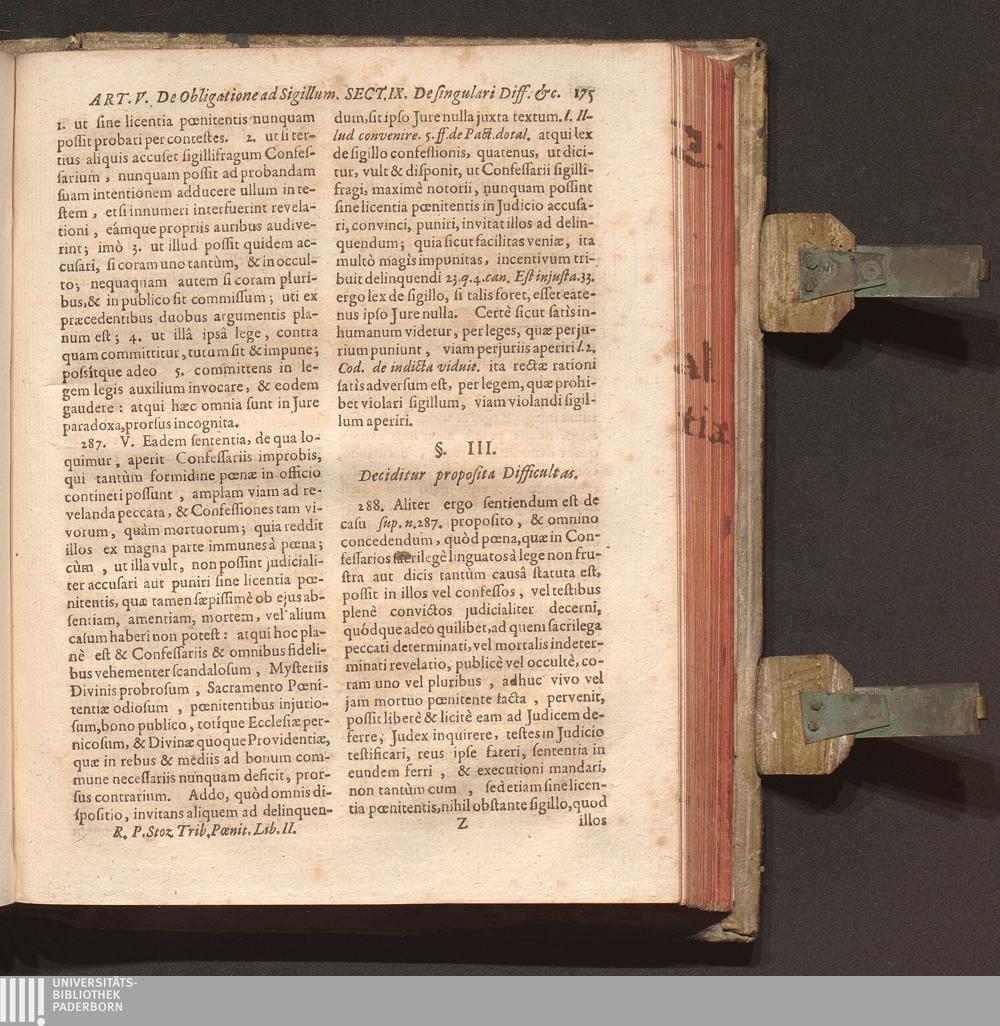 ART. V. De Obligatione ad Sigillum. SECT. IX. De singulari Diff. &c. 175
1. ut sine licentia pœnitentis nunquam
possit probari per contestes. 2. ut si ter-
tius aliquis accuset sigillifragum Confes-
sarium, nunquam possit ad probandam
suam intentionem adducere ullum in te-
stem, etsi innumeri interfuerint revela-
tioni, eámque propriis auribus audive-
rint; imò 3. ut illud possit quidem ac-
cusari, si coram uno tantùm, & in occul-
to; nequaquam autem si coram pluri-
bus, & in publico sit commissum; uti ex
præcedentibus duobus argumentis pla-
num est; 4. ut illâ ipsâ lege, contra
quam committitur, tutum sit & impune;
possítque adeo 5. committens in le-
gem legis auxilium invocare, & eodem
gaudere: atqui hæc omnia sunt in Jure
paradoxa, prorsus incognita.
287. V. Eadem sententia, de qua lo-
quimur, aperit Confessariis improbis,
qui tantùm formidine pœnæ in officio
contineri possunt, amplam viam ad re-
velanda peccata, & Confessiones tam vi-
vorum, quàm mortuorum; quia reddit
illos ex magna parte immunes à pœna;
cùm, ut illa vult, non possint judiciali-
ter accusari aut puniri sine licentia pœ-
nitentis, quæ tamen sæpissimè ob ejus ab-
sentiam, amentiam, mortem, vel alium
casum haberi non potest: atqui hoc pla-
nè est & Confessariis & omnibus fideli-
bus vehementer scandalosum, Mysteriis
Divinis probrosum, Sacramento Pœni-
tentiæ odiosum, pœnitentibus injurio-
sum, bono publico, totíque Ecclesiæ per-
nicosum, & Divinæ quoque Providentiæ,
quæ in rebus & mediis ad bonum com-
mune necessariis nunquam deficit, pror-
sus contrarium. Addo, quòd omnis di-
spositio, invitans aliquem ad delinquen-
R. P. Stoz Trib. Pœnit. Lib. II.
dum, sit ipso Jure nulla juxta textum. l. Il-
lud convenire. 5. ff. de Pact. dotal. atqui lex
de sigillo confessionis, quatenus, ut dici-
tur, vult & disponit, ut Confessarii sigilli-
fragi, maximè notorii, nunquam possint
sine licentia pœnitentis in Judicio accusa-
ri, convinci, puniri, invitat illos ad delin-
quendum; quia sicut facilitas veniæ, ita
multò magis impunitas, incentivum tri-
buit delinquendi 23. q. 4. can. Est injusta. 33.
ergo lex de sigillo, si talis foret, esset eate-
nus ipso Jure nulla. Certè sicut satis in-
humanum videtur, per leges, quæ perju-
rium puniunt, viam perjuriis aperiri l. 2.
Cod. de indicta viduit. ita rectæ rationi
satis adversum est, per legem, quæ prohi-
bet violari sigillum, viam violandi sigil-
lum aperiri.
§. III.
Deciditur proposita Difficultas.
288. Aliter ergo sentiendum est de
casu sup. n. 287. proposito, & omnino
concedendum, quòd pœna, quæ in Con-
fessarios sacrilegè linguatos à lege non fru-
stra aut dicis tantùm causâ statuta est,
possit in illos vel confessos, vel testibus
plenè convictos judicialiter decerni,
quódque adeo quilibet, ad quem sacrilega
peccati determinati, vel mortalis indeter-
minati revelatio, publicè vel occultè, co-
ram uno vel pluribus, adhuc vivo vel
jam mortuo pœnitente facta, pervenit,
possit liberè & licitè eam ad Judicem de-
ferre, Judex inquirere, testes in Judicio
testificari, reus ipse fateri, sententia in
eundem ferri, & executioni mandari,
non tantùm cum, sed etiam sine licen-
tia pœnitentis, nihil obstante sigillo, quod
Z illos
UNIVERSITÄTS-
BIBLIOTHEK
PADERBORN